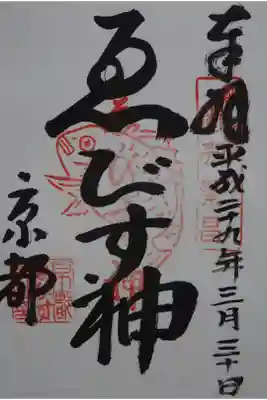 奉拝 平成二十九年三月三十日
ゑびす神
京都